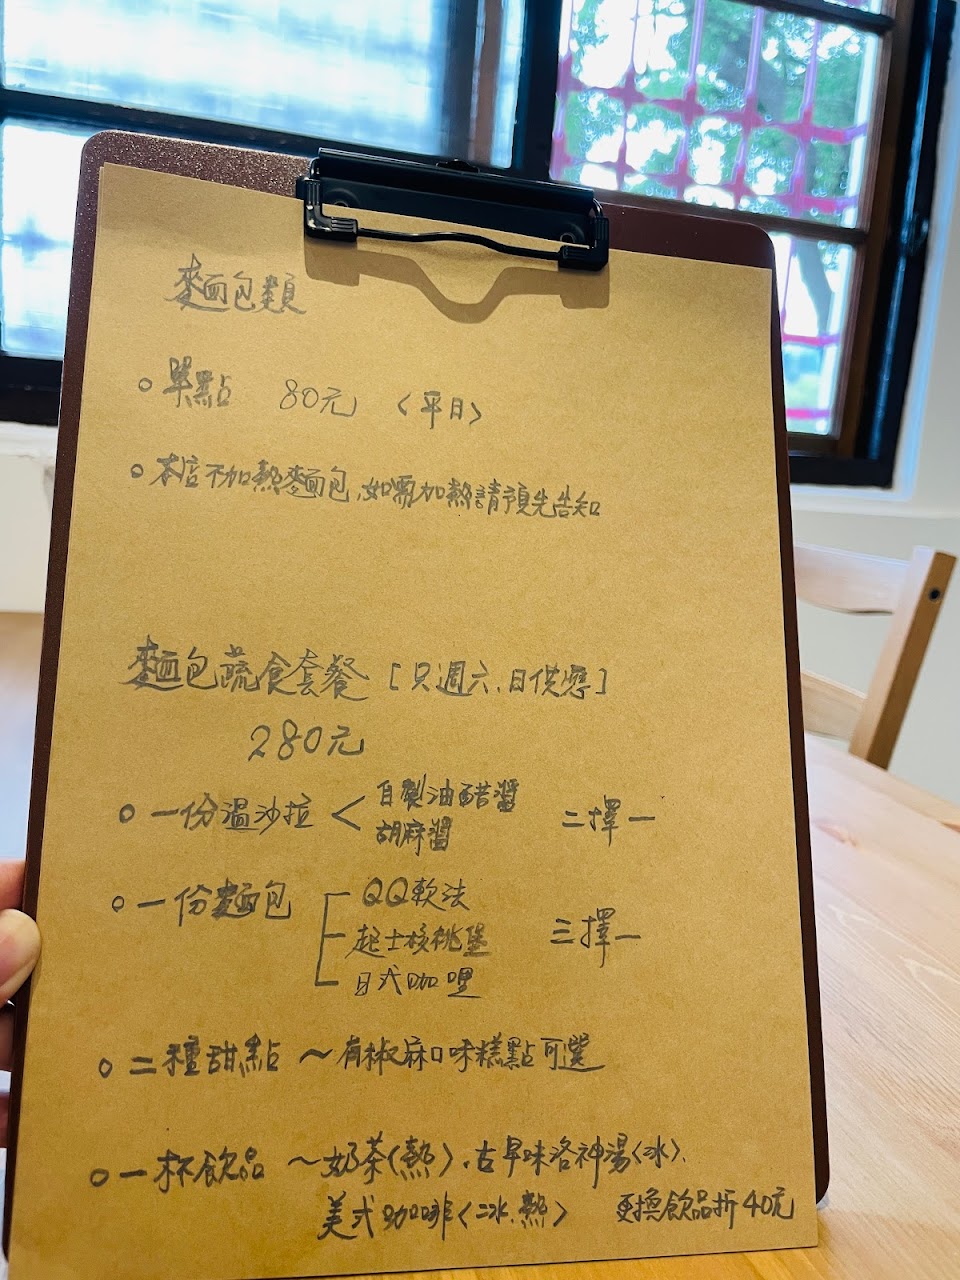 麵包類
○單點 80元 〈平日〉
○本店不加熱麵包,如需加熱請預先告知
麵包蔬食套餐 [只週六、日供應]
280元
○一份溫沙拉 < 自製油醋醬 二擇一
胡麻醬
○一份麵包 QQ軟法
起士核桃堡 三擇一
日式咖哩
○二種甜點 ~有椒麻口味糕點可選
○一杯飲品 ~奶茶(熱)、古早味洛神湯〈冰〉、
美式咖啡〈冰、熱〉 更換飲品折40元